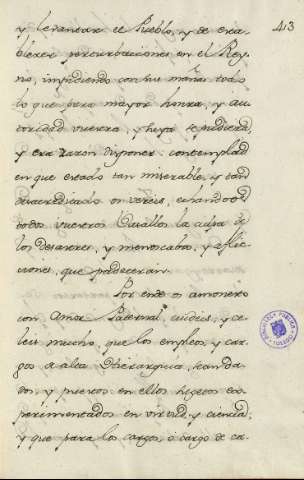 413
y levantar el Pueblo, y de esta-
blecer perturbaciones en el Rey-
no, impidiendo con su maña todo
lo que para mayor honra, y au-
toridad vuestra, y suya se pudiera,
y era razon disponer: contemplad
en que estado tan miserable, y tan
desacreditado os vereis, echandoos
todos vuestros Vasallos la culpa de
los desaseres, y menoscabos, y aflic-
ciones, que padecerian.
Por ende os amonesto
con Amor Paternal cuideis, y ce-
leis mucho, que los empleos, y car-
gos a alta Dhierarquia, sean da-
dos, y puestos en ellos sugetos es-
perimentados en virtud, y ciencia;
y que para los cargos, o cargo de ca-
BIBLIOTECA PUBLICA
TOLEDO